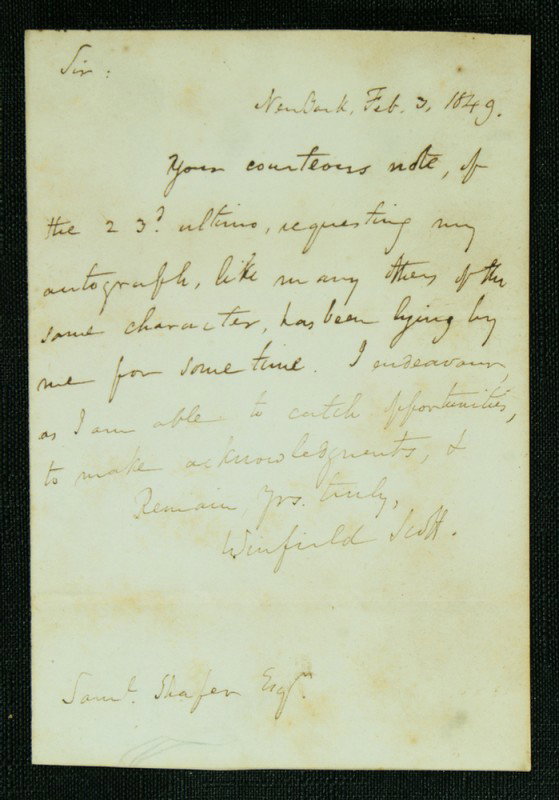 Sir:
New York, Feb. 3, 1849.
Your courteous note, of
the 23d ultimo, requesting my
autograph, like many others of the
same character, has been lying by
me for some time. I endeavour,
as I am able to catch opportunities,
to make acknowledgments, &
Remain, Yrs. truly,
Winfield Scott.
Saml. Shafer Esqr.